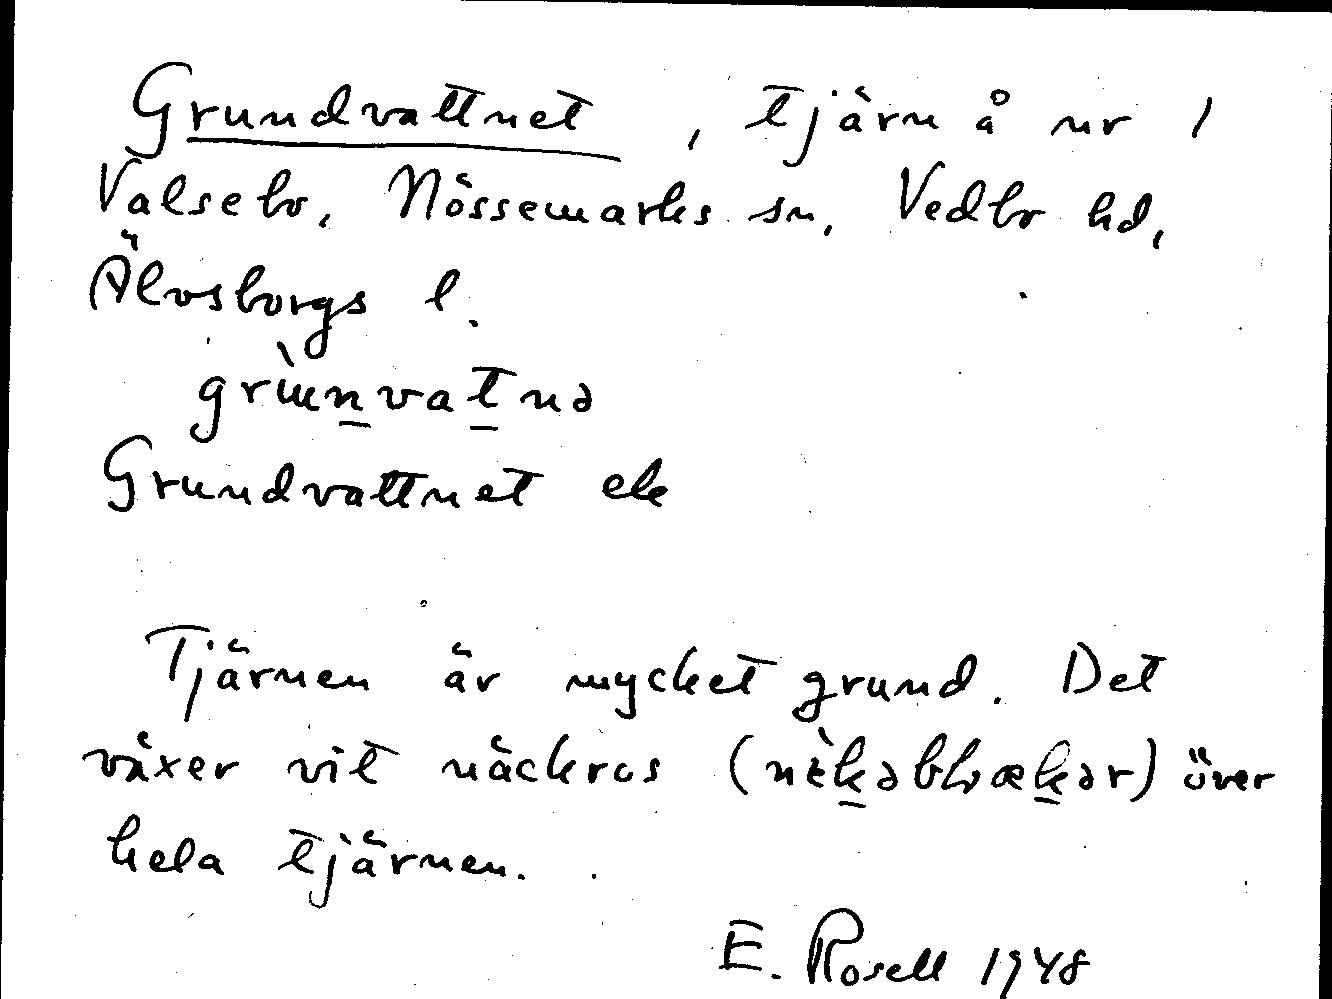 Grundvattnet, tjärn å nr 1
Valsebo, Nössemarks sn, Vedbo hd,
Älvsborgs l.
grɯ̀n̲vat̲nə
Grundvattnet ek
Tjärnen är mycket grund. Det
växer vit näckros (nɛ̀k̲əblɷæk̲ər) över
hela tjärnen.
E. Rosell 1948